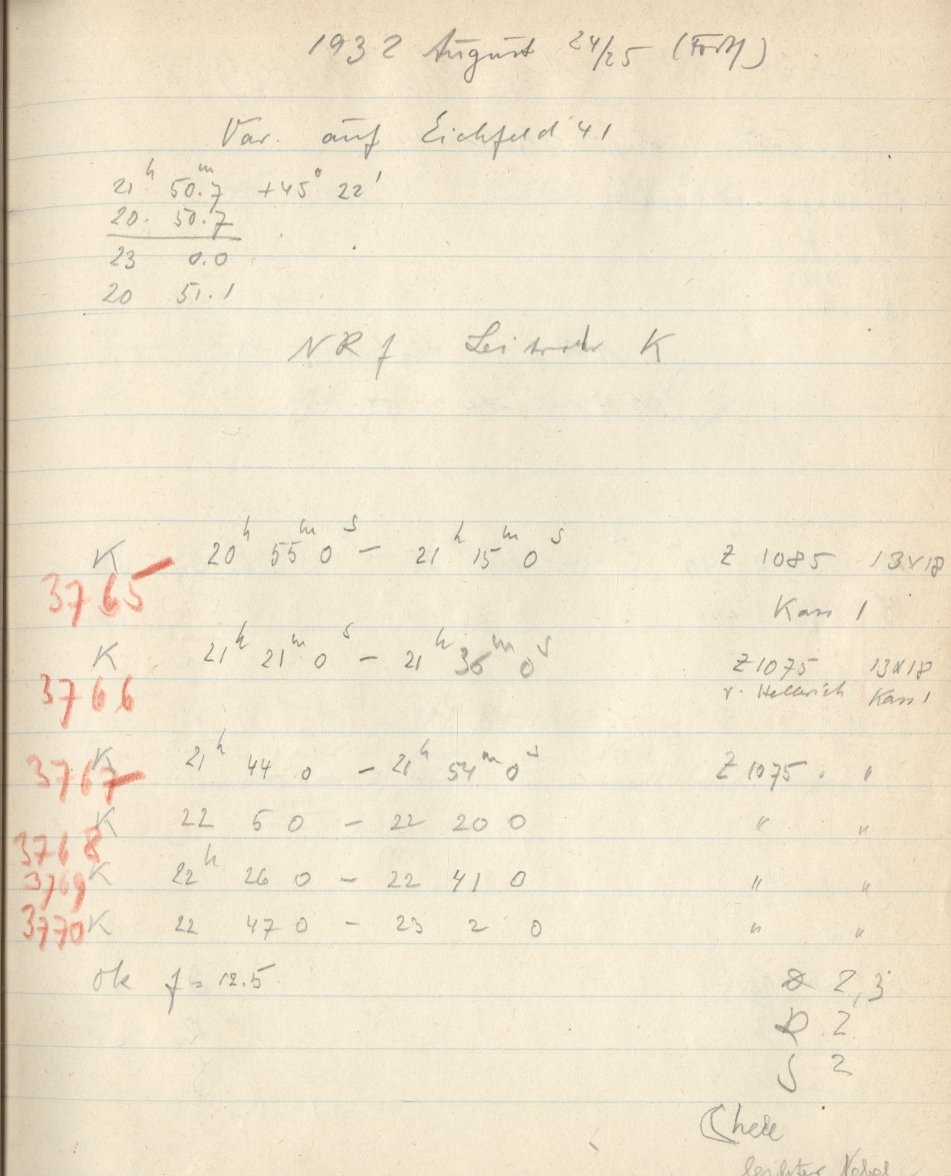 1932 August 24/25 (Forts)
Var. auf Eichfeld 4.1
21h 50.7m +45° 22'
20. 50.7
23 0.0
20 51.1
NR f Leitrohr K
K 20h 55m 0s - 21h 15m 0s Z 1085 13x18
3765 Kass 1
K 21h 21m 0s - 21h 36m 0s Z 1075 13x18
3766 v. Hellerich Kass 1
3767 K 21h 44 0 - 21h 54m 0s Z 1075 " "
3768 K 22 5 0 - 22 20 0 " "
3769 K 22h 26 0 - 22 41 0 " "
3770 K 22 47 0 - 23 2 0 " "
Ok f = 12.5 2,3
D 2
S 2
leichter Nebel